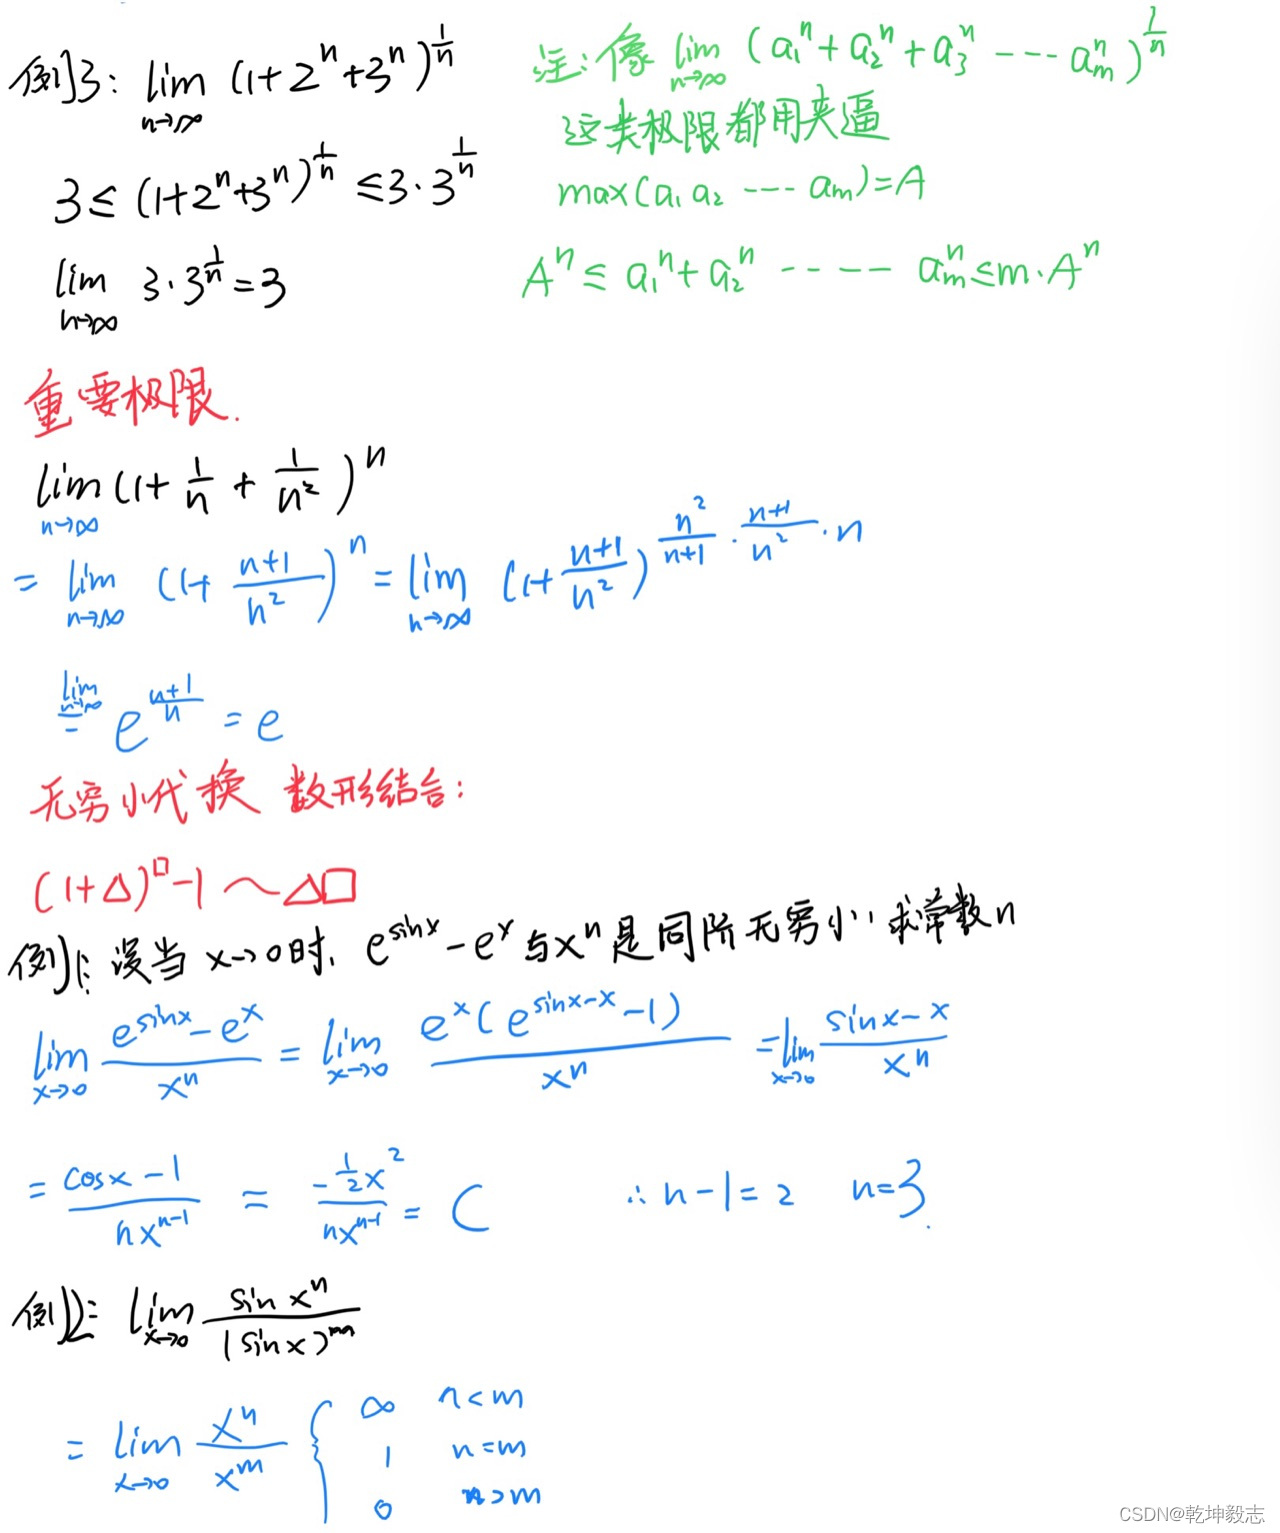 例3: lim n→∞ (1+2^n+3^n)^(1/n)
3 ≤ (1+2^n+3^n)^(1/n) ≤ 3·3^(1/n)
lim n→∞ 3·3^(1/n) = 3
注: 像 lim n→∞ (a₁^n + a₂^n + a₃^n ---- a_m^n)^(1/n)
这类极限都用夹逼
max(a₁ a₂ --- a_m) = A
A^n ≤ a₁^n + a₂^n ----- a_m^n ≤ m·A^n
重要极限.
lim n→∞ (1 + 1/n + 1/n²)^n
= lim n→∞ (1 + (n+1)/n²)^n = lim n→∞ (1 + (n+1)/n²)^(n²/(n+1) · (n+1)/n² · n)
= lim n→∞ e^((n+1)/n) = e
无穷小代换 数形结合:
(1+△)^□ -1 ~ △□
例1: 设当 x→0时, e^(sinx) - e^x 与 x^n 是同阶无穷小, 求常数n
lim x→0 (e^(sinx) - e^x)/x^n = lim x→0 e^x(e^(sinx-x) -1)/x^n = lim x→0 (sinx-x)/x^n
= (cosx-1)/(nx^(n-1)) = (-1/2 x²)/(nx^(n-1)) = C ∴ n-1=2 n=3.
例2: lim x→0 sin x^n/(sinx)^m
= lim x→0 x^n/x^m { ∞ n<m
1 n=m
0 n>m
CSDN@乾坤毅志